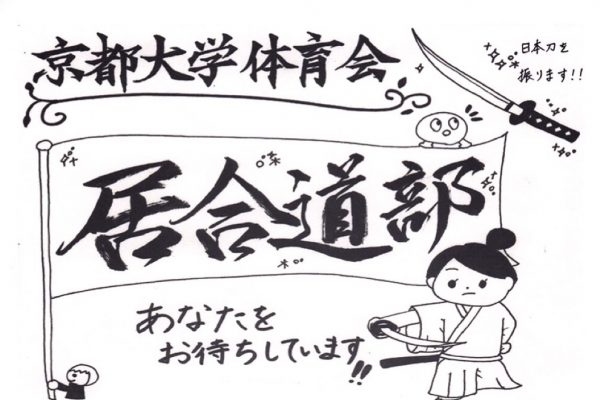 京都大学体育会
日本刀を
振ります!!
居合道部
あなたを
お待ちしています!!